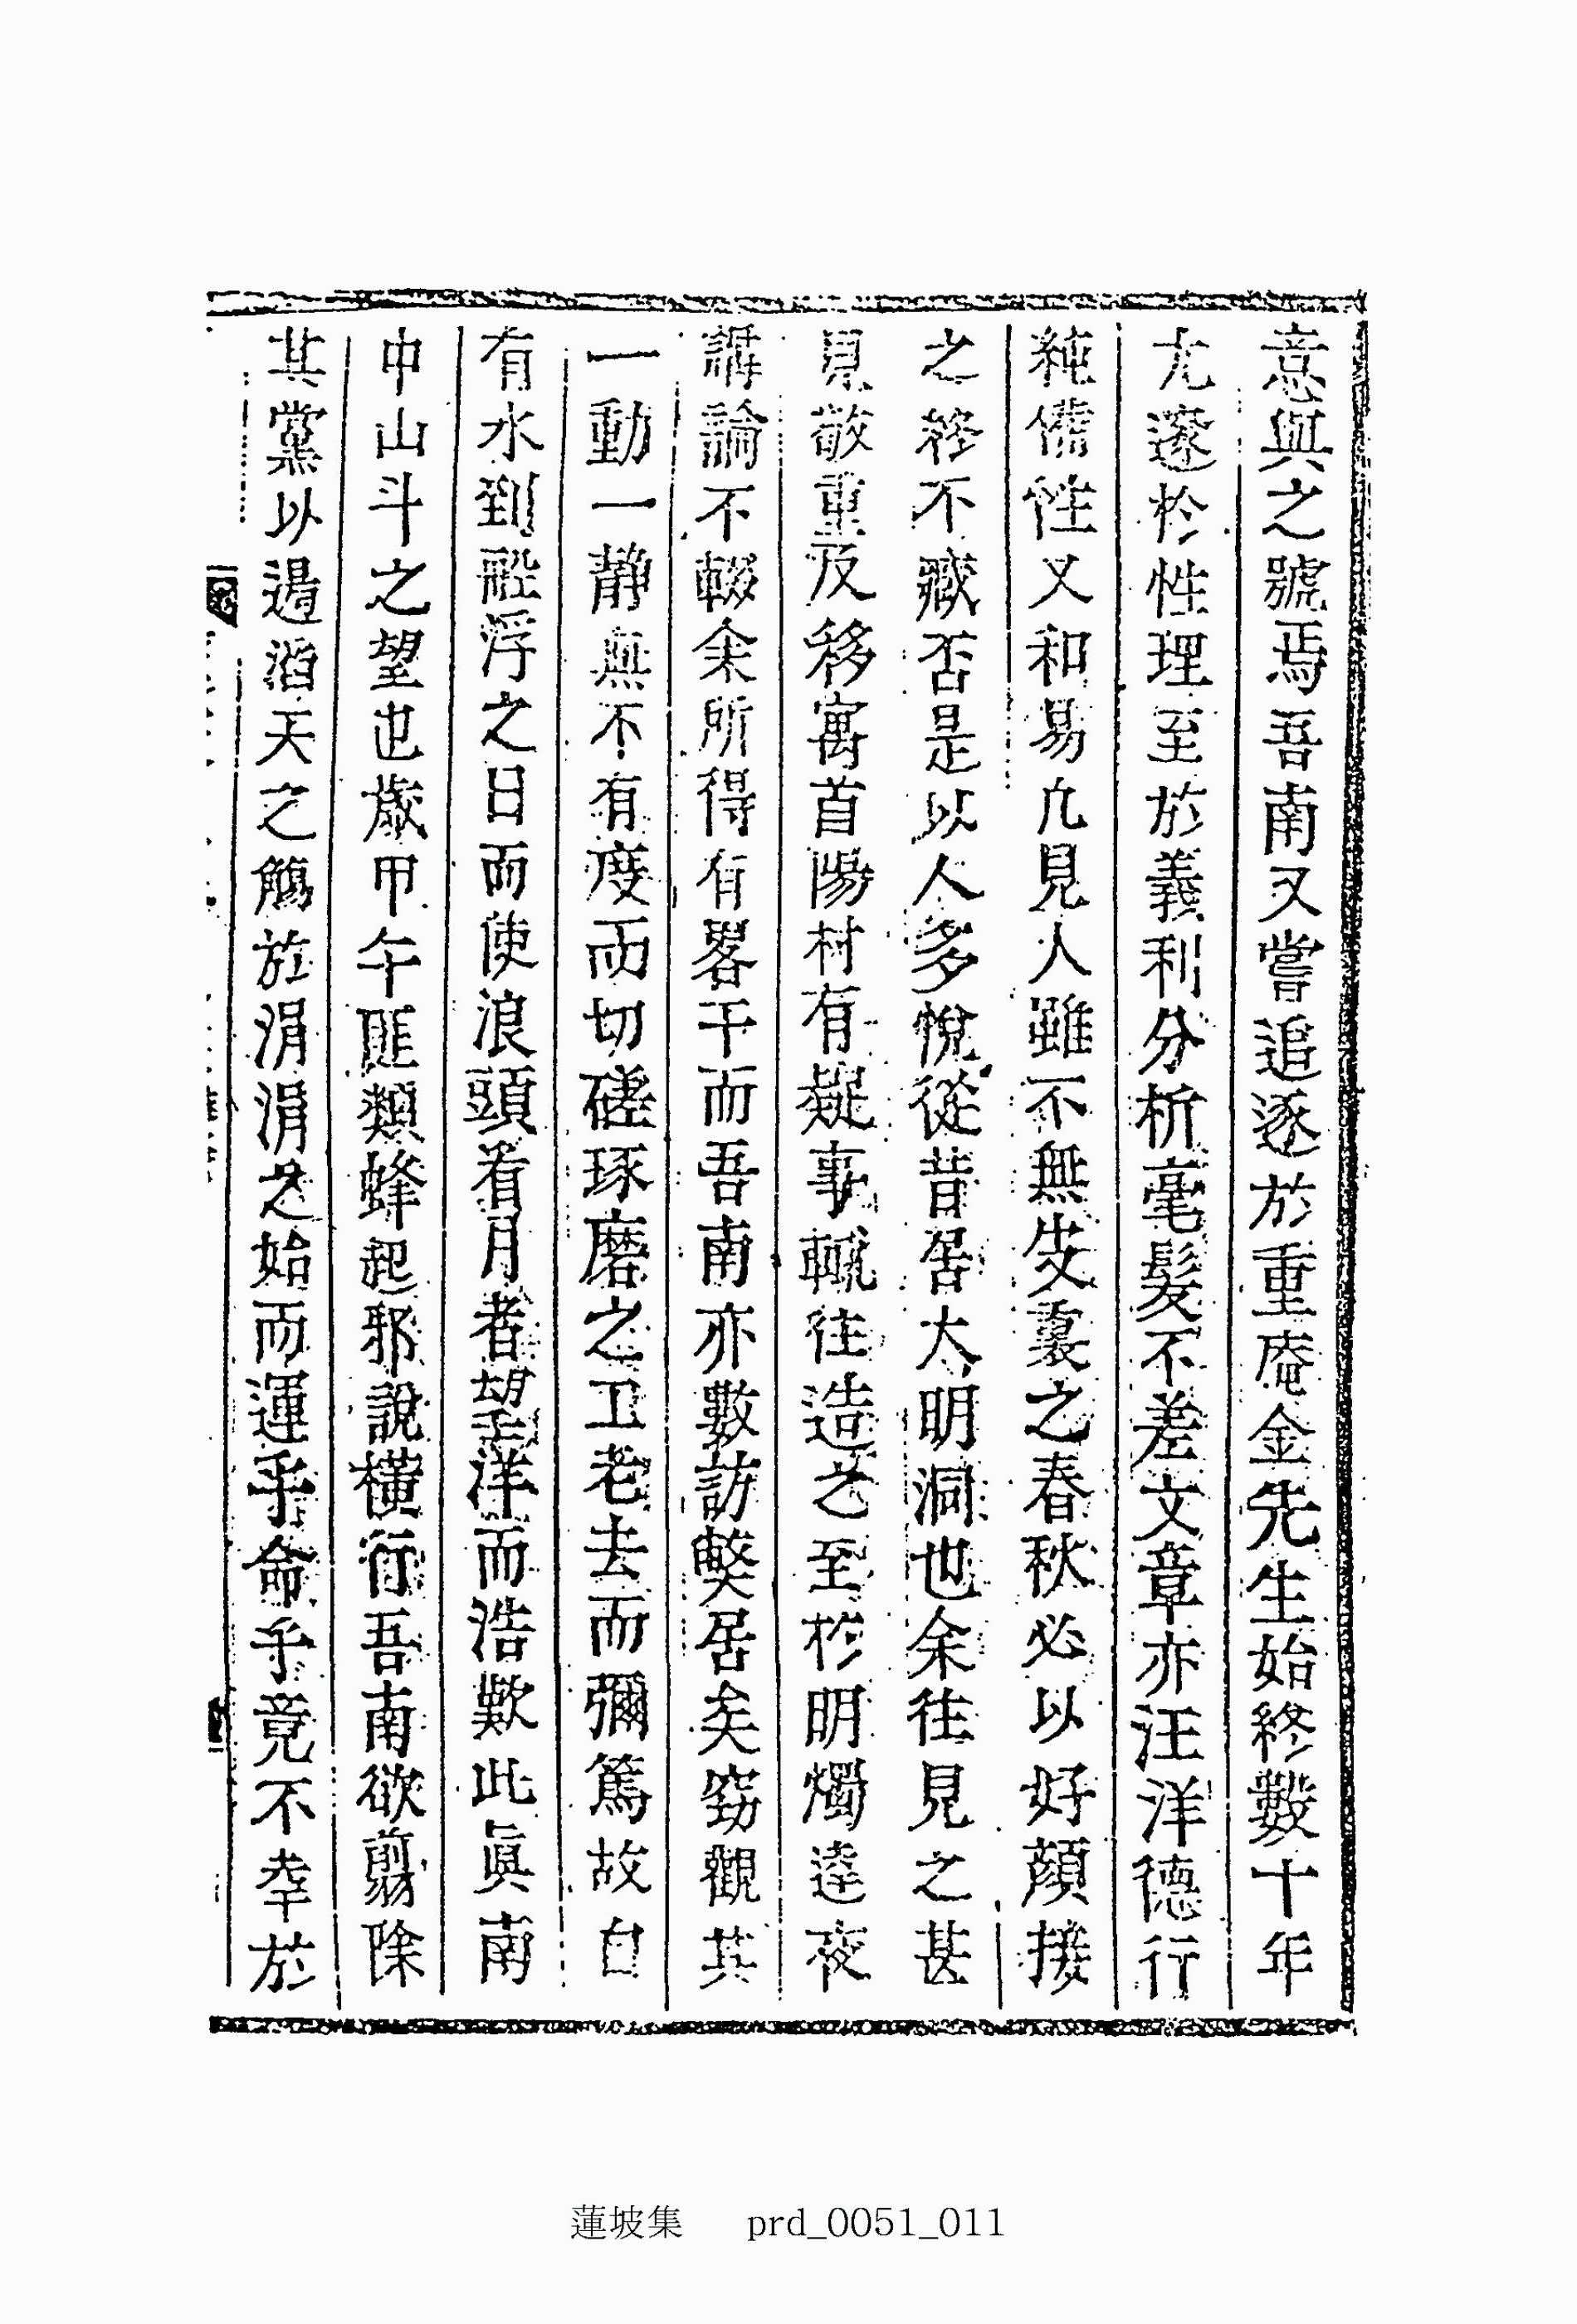 意與之號焉吾南又嘗追逐於重庵金先生始終數十年
尤邃於性理至於義利分析毫髮不差文章亦汪洋德行
純備性又和易凡見人雖不無皮裏之春秋必以好顔接
之終不臧否是以人多悅從昔居大明洞也余往見之甚
見敬重及移寓首陽村有疑事輒往造之至於明燭達夜
講論不輟余所得有畧干而吾南亦數訪弊居矣窃觀其
一動一静無不有度而切磋琢磨之工老去而彌篤故自
有水到船浮之日而使浪頭看月者望洋而浩歎此眞南
中山斗之望也歳甲午匪類蜂起邪說橫行吾南欲翦除
其黨以遏滔天之觴於涓涓之始而運乎命乎竟不幸於
蓮坡集 prd_0051_011